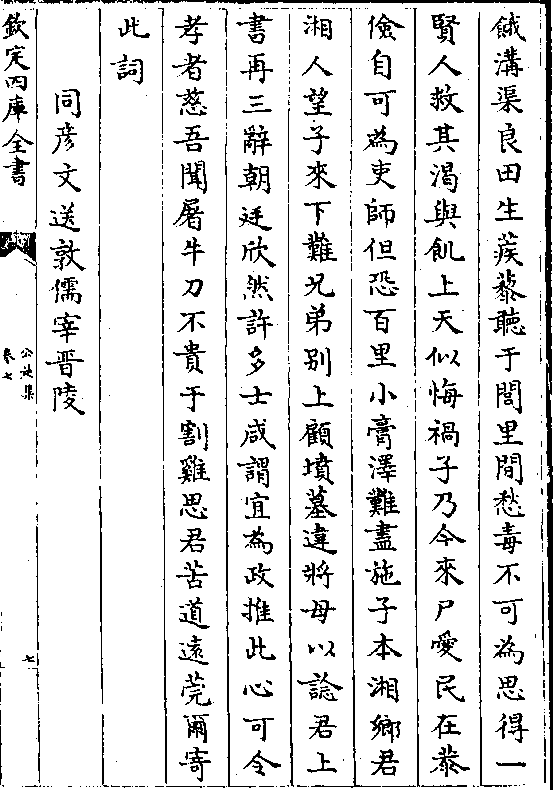 餓溝渠良田生蒺藜聽于閭里間愁毒不可為思得一
賢人救其渴與飢上天似悔禍子乃今來尸愛民在恭
儉自可為吏師但恐百里小膏澤難盡施子本湘鄉君
湘人望子來下難兄弟別上顧墳墓違將母以諗君上
書再三辭朝廷欣然許多士咸謂宜為政推此心可令
孝者慈吾聞屠牛刀不貴于割雞思君苦道遠莞爾寄
此詞
同彦文送敦儒宰晋陵
欽定四庫全書
公是集
卷七
七